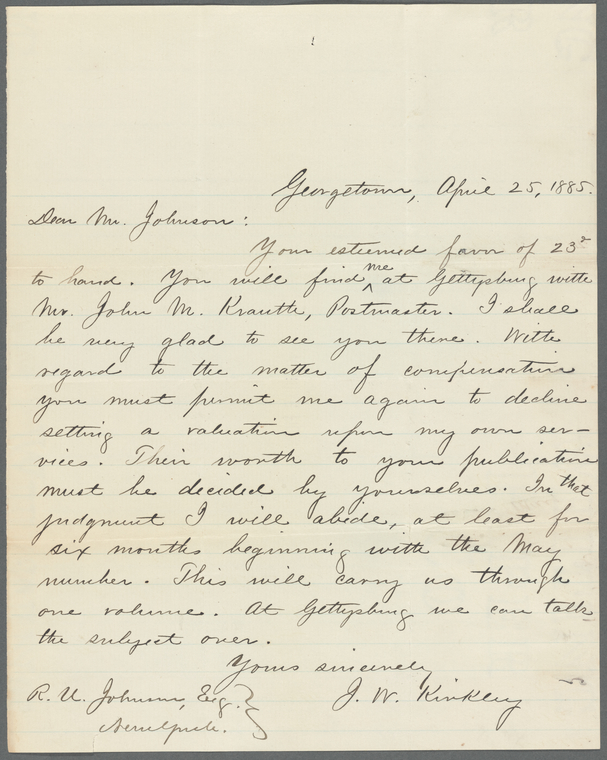 Georgetown, April 25, 1885.
Dear Mr. Johnson:
Your esteemed favor of 23ᵈ
to hand. You will find me at Gettysburg with
Mr. John M. Krauth, Postmaster. I shall
be very glad to see you there. With
regard to the matter of compensation
you must permit me again to decline
setting a valuation upon my own ser-
vices. Their worth to your publication
must be decided by yourselves. In that
judgment I will abide, at least for
six months beginning with the May
number. This will carry us through
one volume. At Gettysburg we can talk
the subject over.
Yours sincerely
J. W. Kirkley
R. U. Johnson, Esq.
New York.